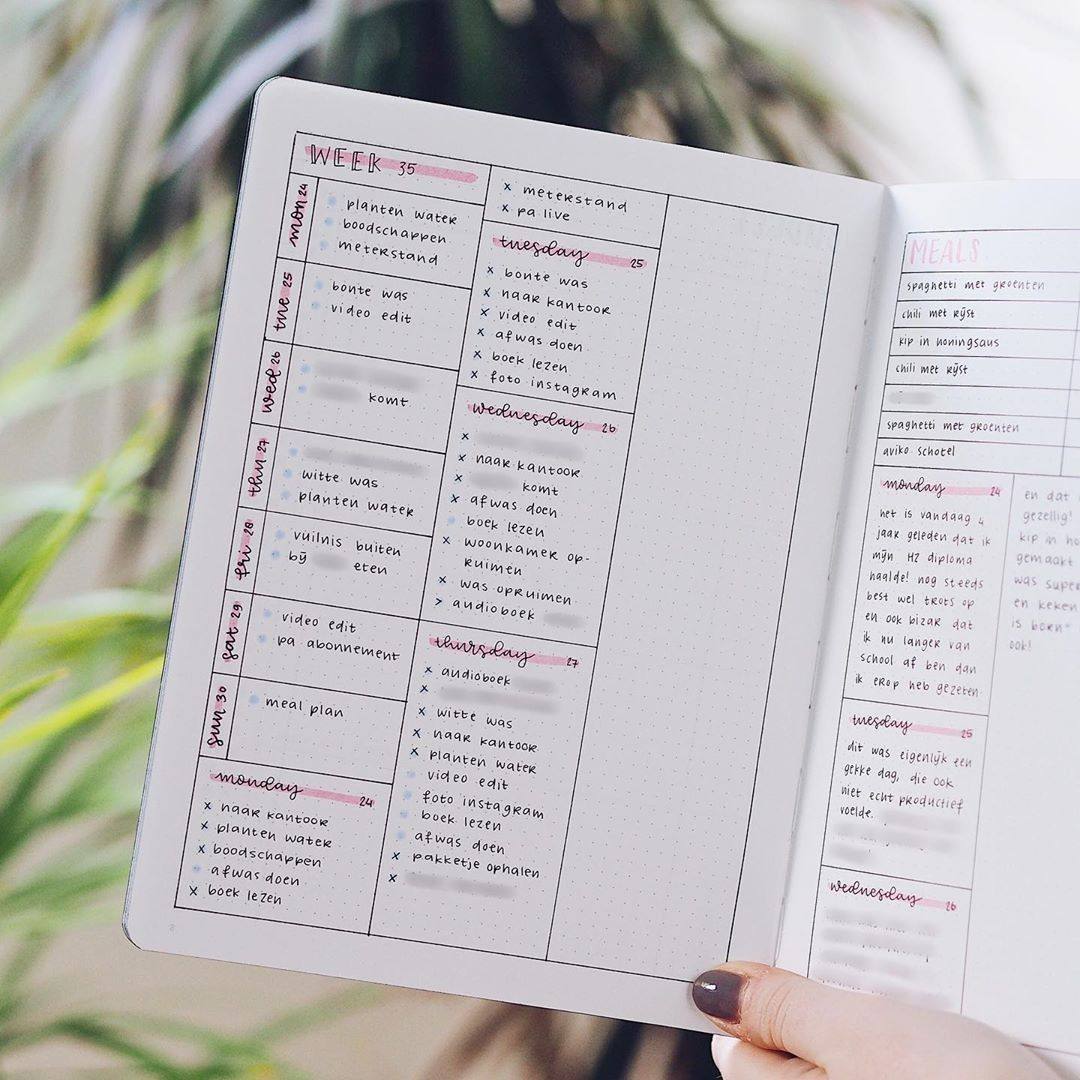 WEEK 35
mon 24
planten water
boodschappen
meterstand
tue 25
bonte was
video edit
wed 26
komt
thu 27
witte was
planten water
fri 28
vuilnis buiten
bij eten
sat 29
video edit
pa abonnement
sun 30
meal plan
monday 24
x naar kantoor
x planten water
x boodschappen
afwas doen
x boek lezen
x meterstand
x pa live
tuesday 25
x bonte was
x naar kantoor
x video edit
x afwas doen
x boek lezen
x foto instagram
wednesday 26
x
x naar kantoor
x komt
x afwas doen
boek lezen
x woonkamer op-
ruimen
x was opruimen
> audioboek
thursday 27
x audioboek
x
x witte was
x naar kantoor
x planten water
video edit
foto instagram
boek lezen
afwas doen
x pakketje ophalen
x
MEALS
spaghetti met groenten
chili met rijst
kip in honingsaus
chili met rijst
spaghetti met groenten
aviko schotel
monday 24
het is vandaag 4
jaar geleden dat ik
mijn HZ diploma
haalde! nog steeds
best wel trots op
en ook bizar dat
ik nu langer van
school af ben dan
ik erop heb gezeten.
en dat
gezellig!
kip in ho
gemaakt
was super
en keken
is born"
ook!
tuesday 25
dit was eigenlijk een
gekke dag, die ook
niet echt productief
voelde.
wednesday 26